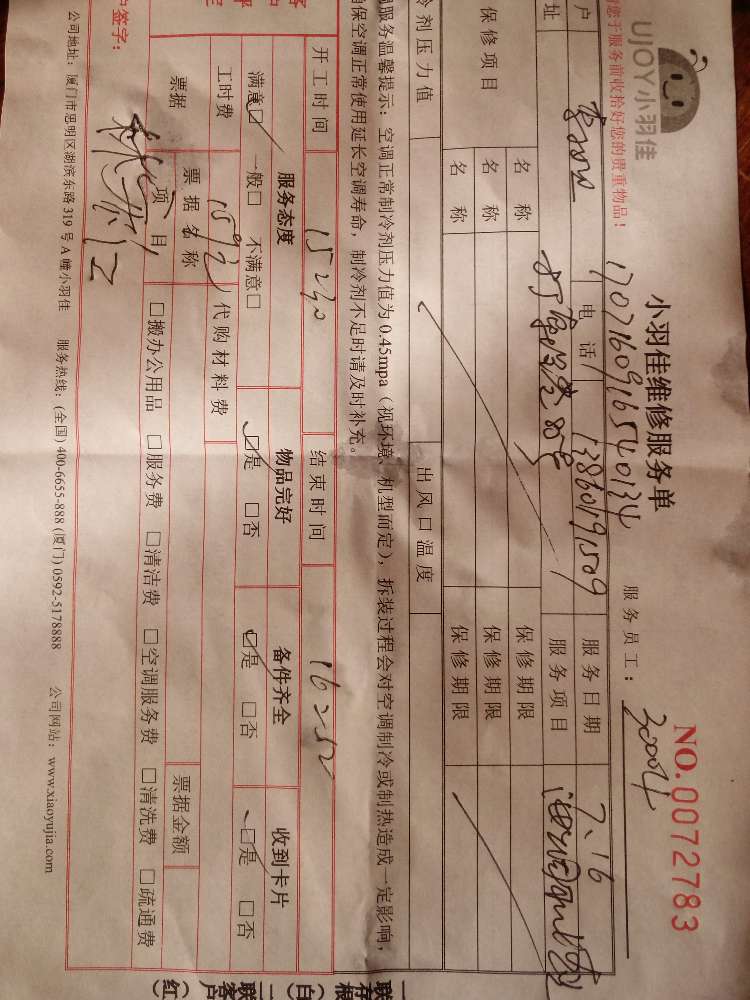 UJOY小羽佳
小羽佳维修服务单
NO.0072783
服务前收拾好您的贵重物品！
17071609165540134
服务员工：30004
户
电话 13860191509
服务日期 7.16
址
服务项目
保修项目
名称
保修期限
名称
保修期限
名称
保修期限
冷剂压力值
出风口温度
服务温馨提示：空调正常制冷剂压力值为 0.45mpa（视环境、机型而定），拆装过程会对空调制冷或制热造成一定影响，
保空调正常使用延长空调寿命，制冷剂不足时请及时补充。
开工时间 15:30
结束时间 16:50
服务态度
物品完好
备件齐全
收到卡片
满意☑ 一般□ 不满意□
☑是 □否
☑是 □否
☑是 □否
工时费 159元
代购材料费
票据
票据名称
票据金额
项目
□搬办公用品 □服务费 □清洁费 □空调服务费 □清洗费 □疏通费
户签字：
公司地址：厦门市思明区湖滨东路 319 号 A 幢小羽佳 服务热线：(全国) 400-6655-888 (厦门) 0592-5178888 公司网站：www.xiaoyujia.com
一联存根（白）
一联客户（红）